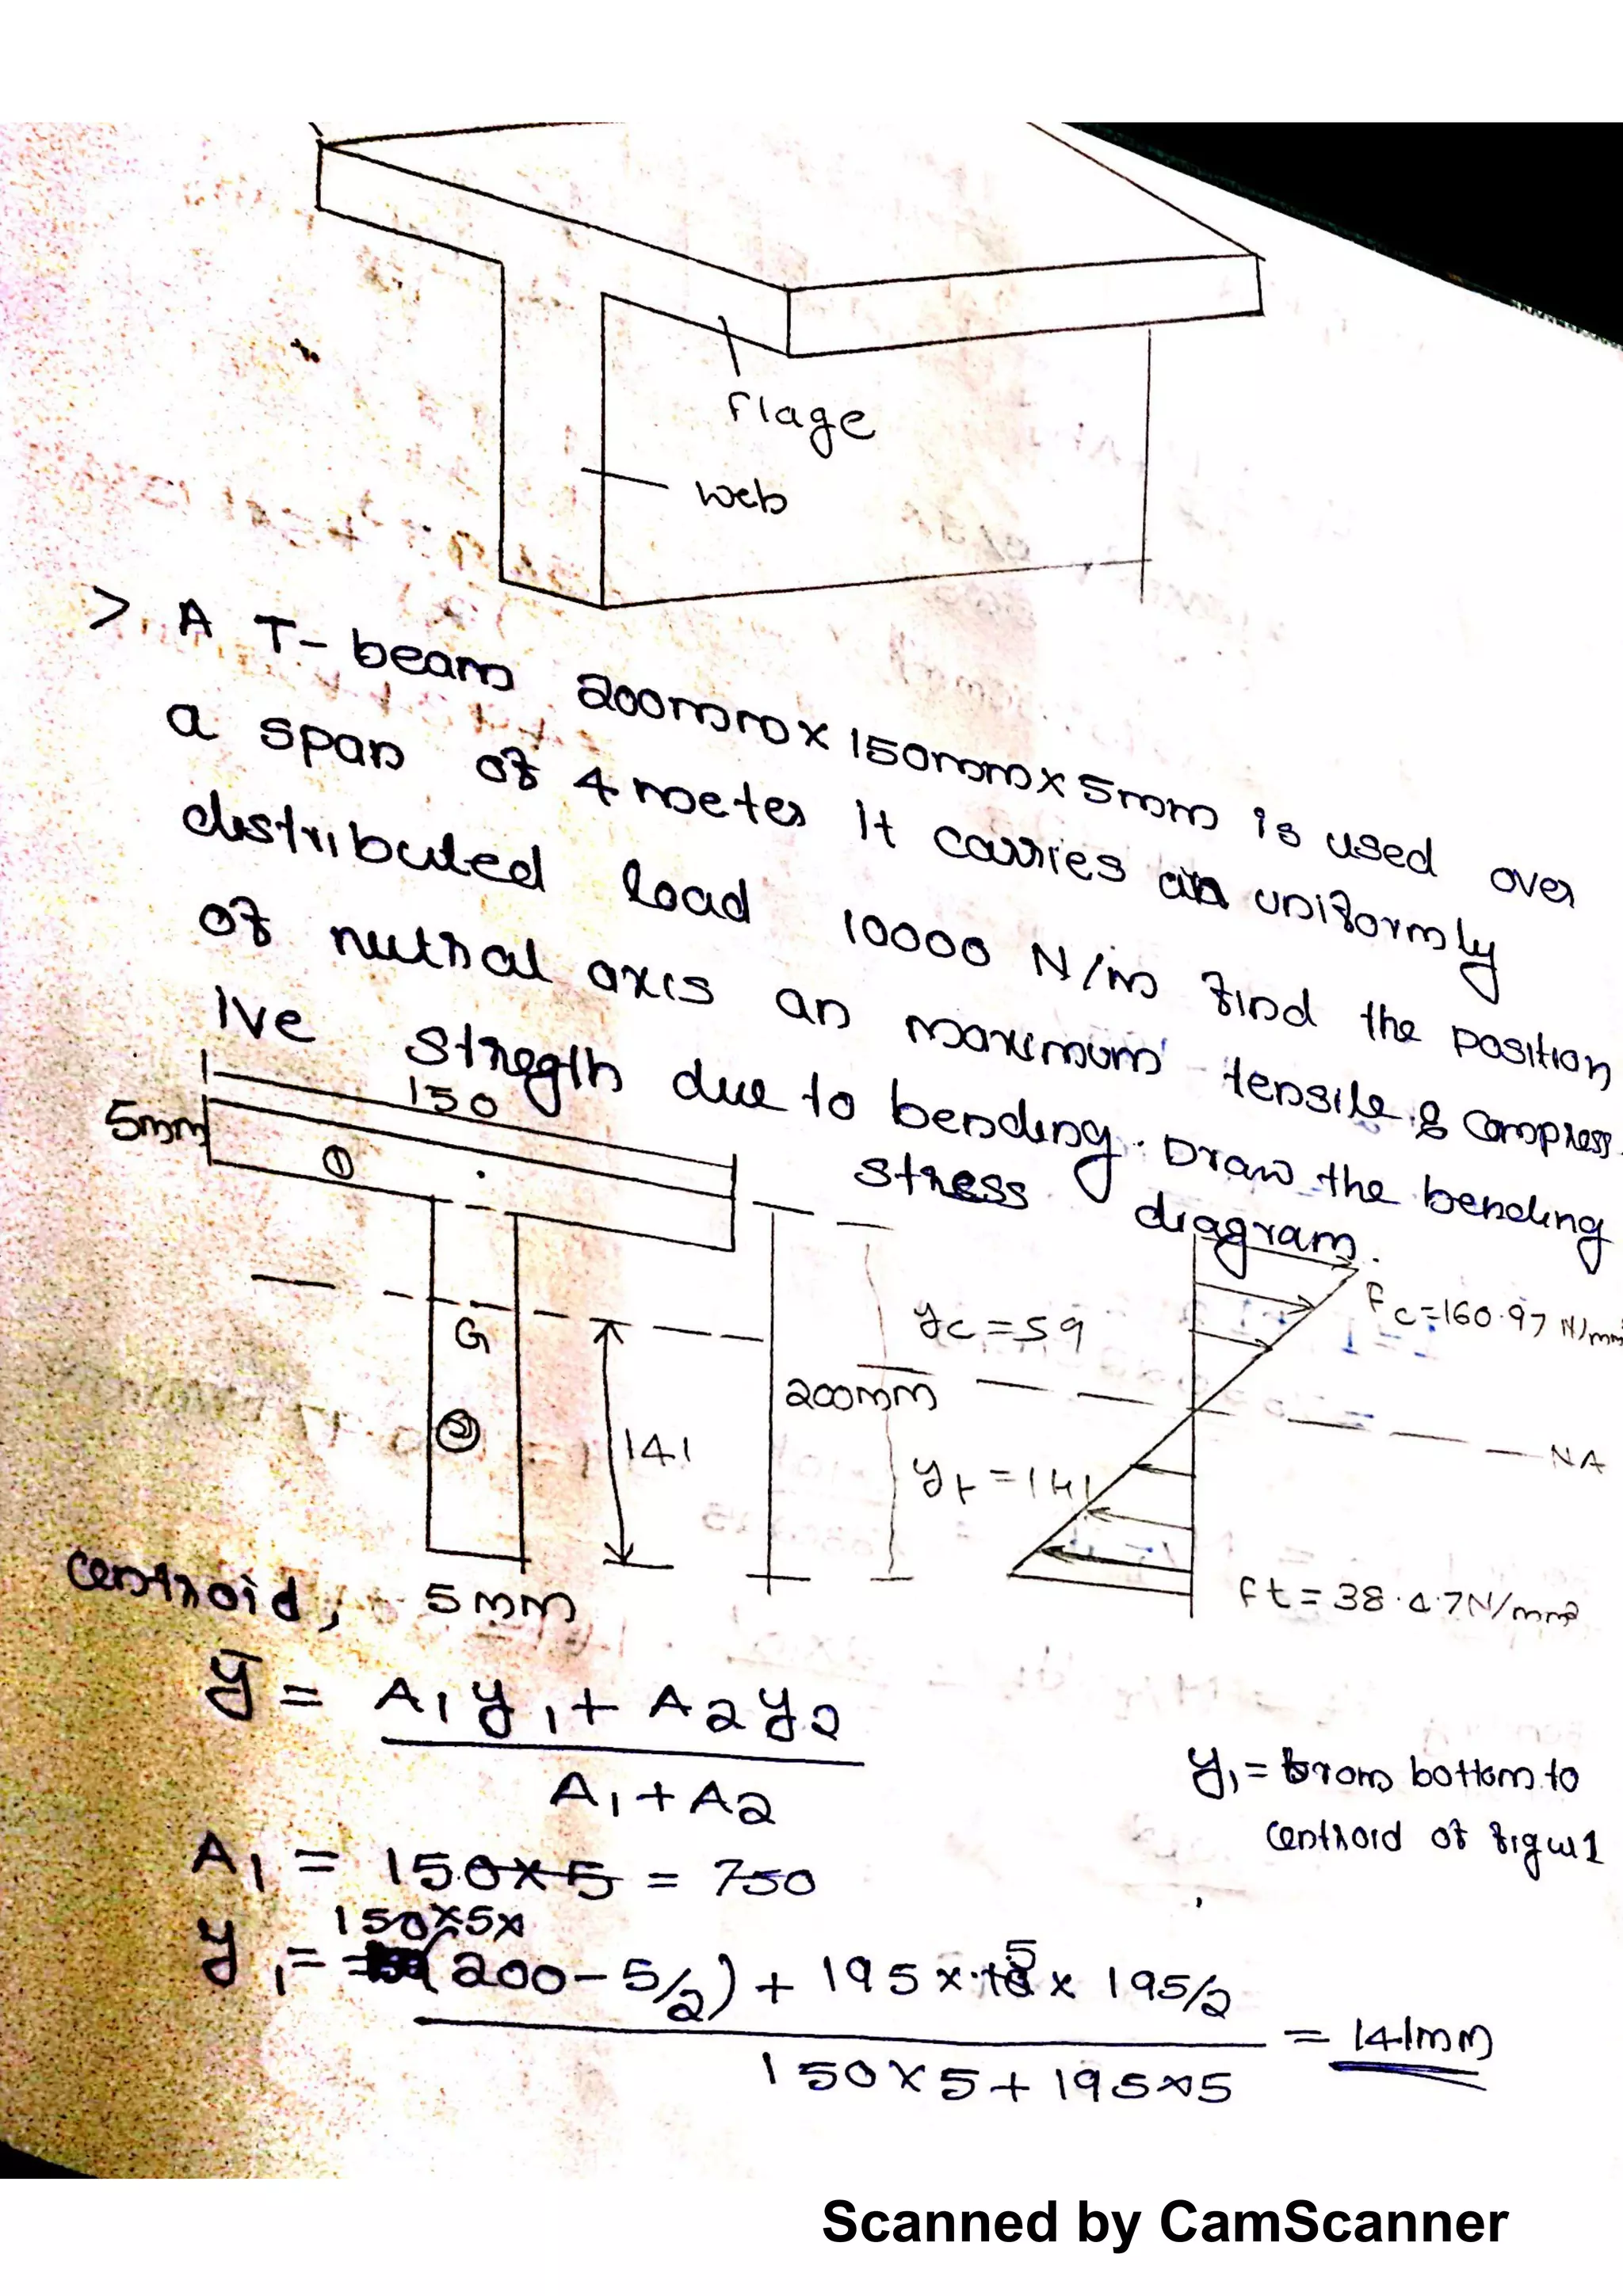 Flage
web
> A T-beam 200mm x 150mm x 5mm is used over
a span of 4 meter It carries an uniformly
distributed load 10000 N/m find the position
of nutral axis an maximum tensile & compress
Ive stregth due to bending. Draw the bending
stress diagram.
150
5mm
1
G
2
141
200mm
yc = 59
yt = 141
Fc = 160.97 N/mm
NA
ft = 38.4.7N/mm²
5mm
centroid,
ȳ = A1y1 + A2y2
A1 + A2
y1 = from bottom to
centroid of figur 1
A1 = 150x5 = 750
150x5x
y1 = (200 - 5/2) + 195 x 5 x 195/2
150x5 + 195x5
= 141mm
Scanned by CamScanner